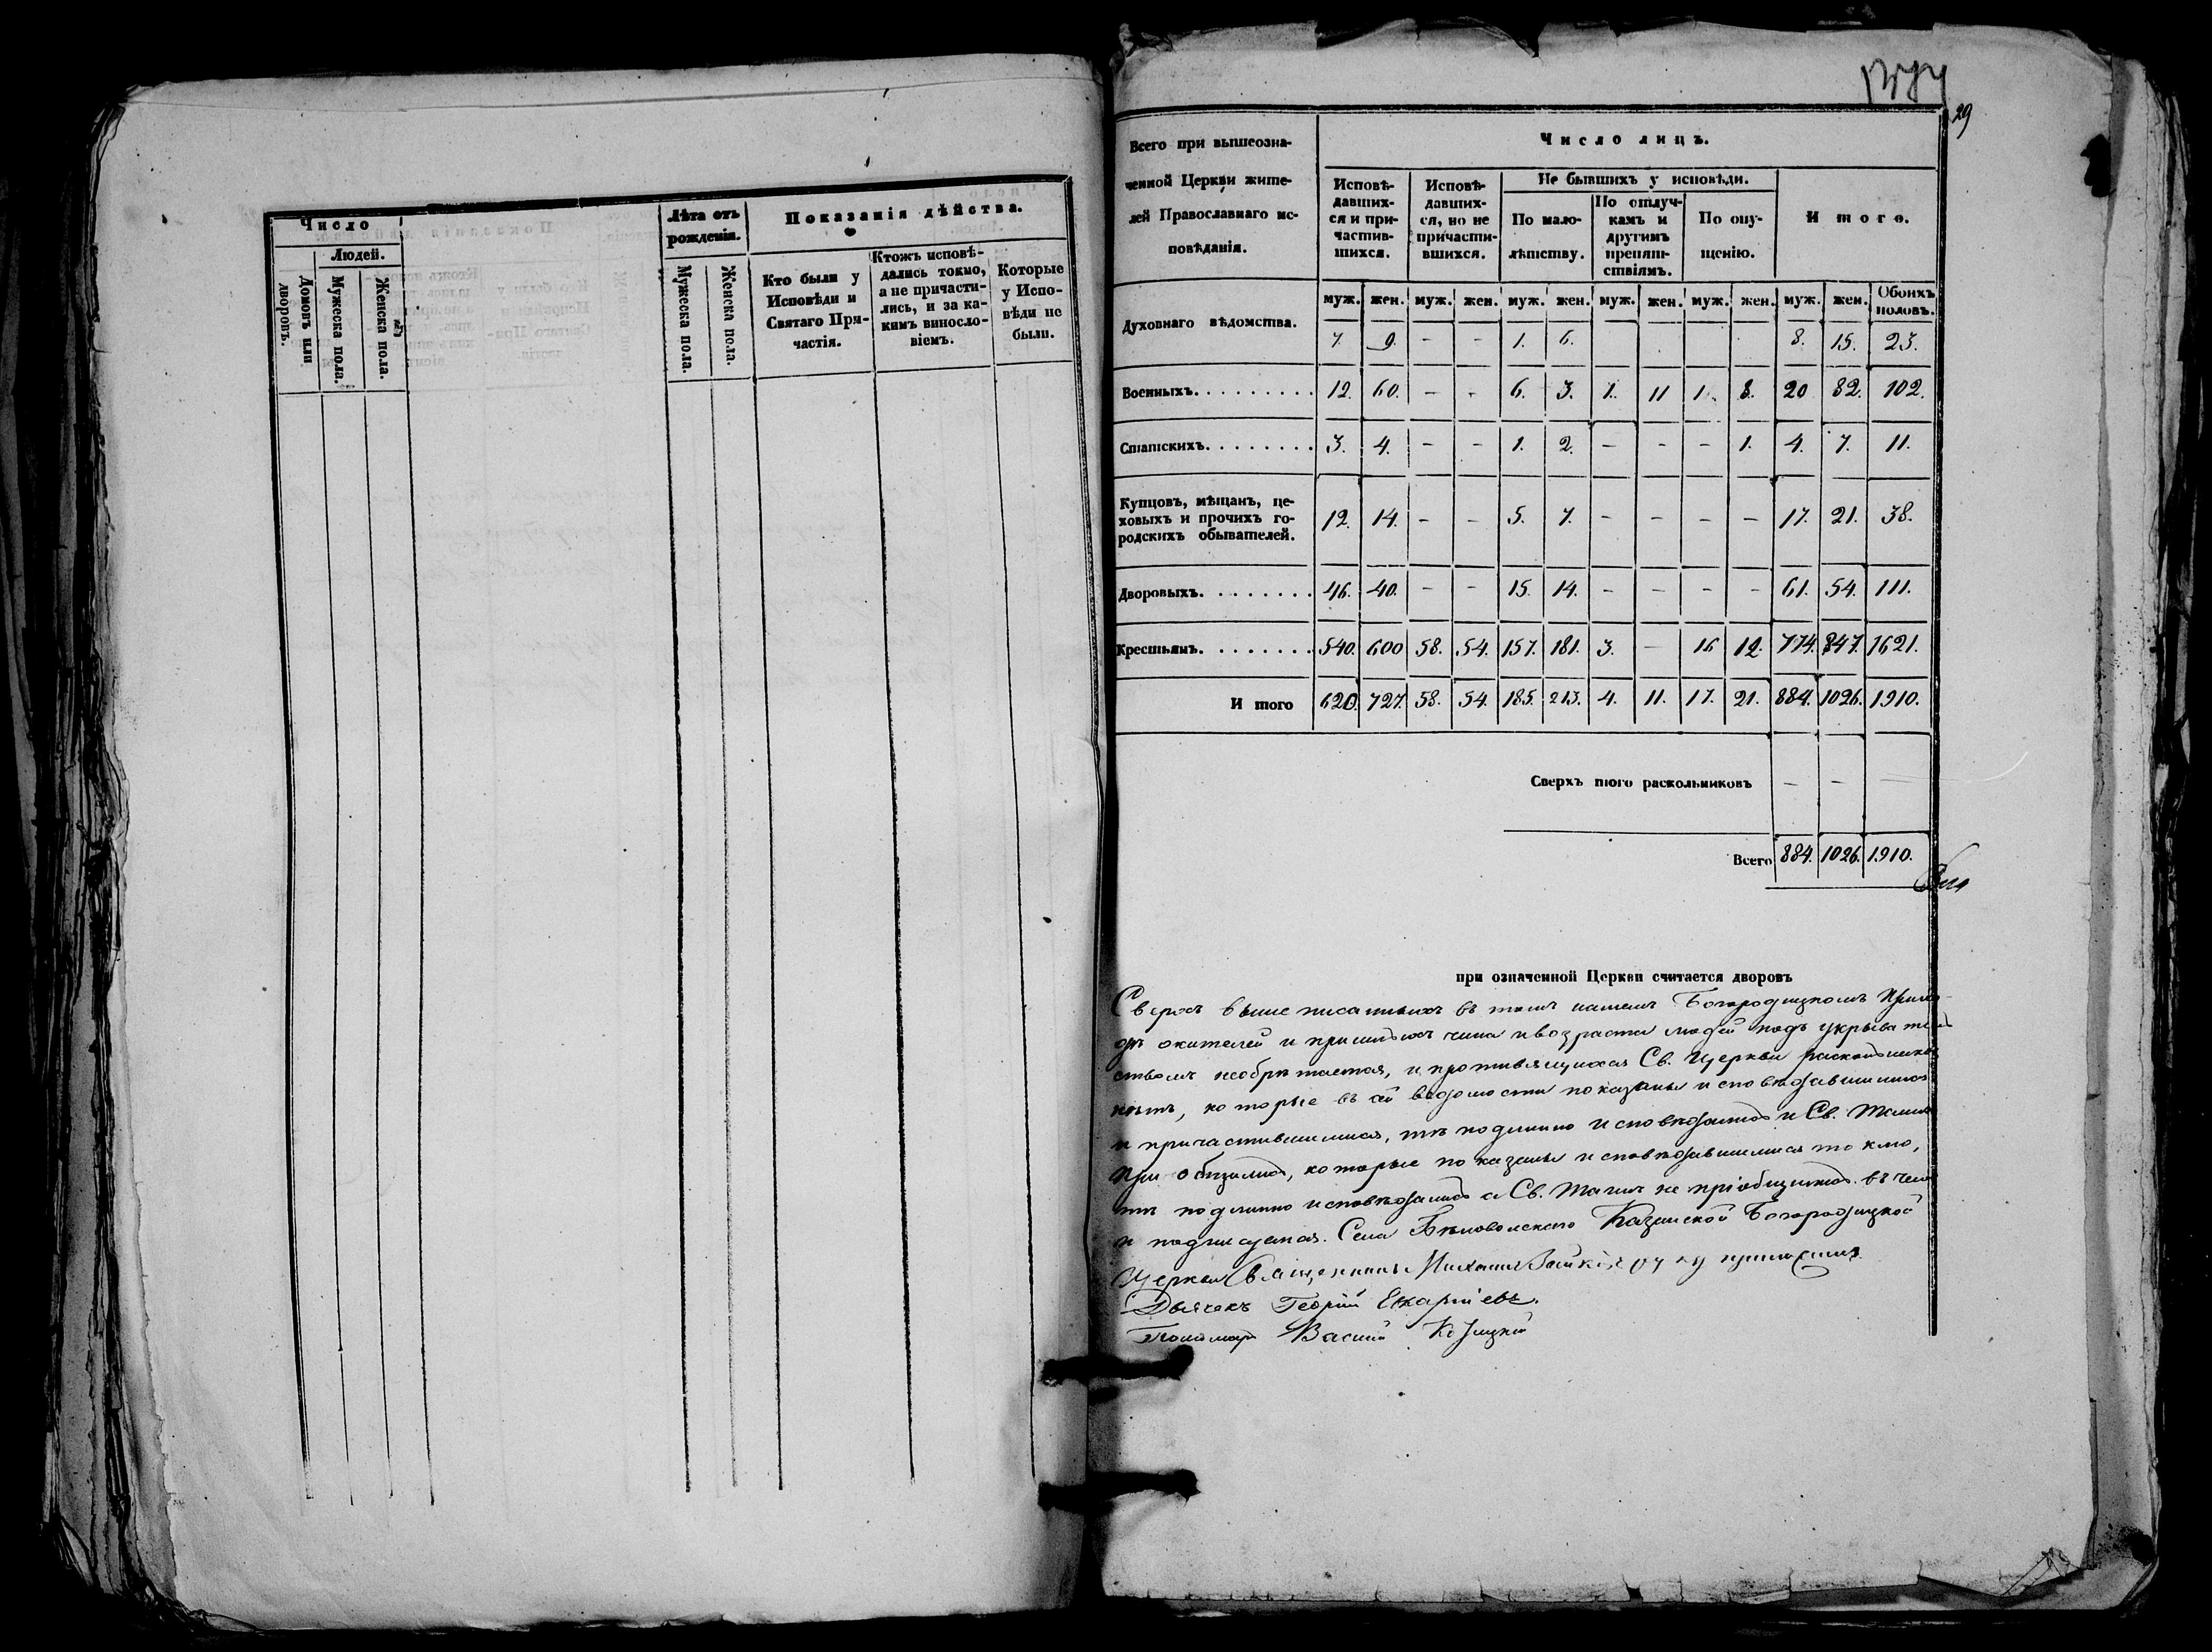 Число
Людей.
Домовъ или дворовъ.
Мужеска пола.
Женска пола.
Лѣта отъ рожденія.
Мужеска пола.
Женска пола.
Показанія дѣйства.
Кто были у Исповѣди и Святаго Причастія.
Ктожъ исповѣдались токмо, а не причастились, и за какимъ винословіемъ.
Которые у Исповѣди не были.
29
Всего при вышеозна-
ченной Церкви жите-
лей Православнаго ис-
повѣданія.
Число лицъ.
Исповѣ-
давших-
ся и при-
частив-
шихся.
Исповѣ-
давших-
ся, но не
причасти-
вшихся.
Не бывшихъ у исповѣди.
По мало-
лѣтству.
По отлуч-
камъ и
другимъ
препят-
ствіямъ.
По опу-
щенію.
И того.
муж. жен. муж. жен. муж. жен. муж. жен. муж. жен. муж. жен. Обоихъ половъ.
Духовнаго вѣдомства. 7. 9. - - 1. 6. 8. 15. 23.
Военныхъ. 12. 60. - - 6. 3. 1. 11 1. 8. 20 82. 102.
Статскихъ. 3. 4. - - 1. 2. - - - 1. 4. 7. 11.
Купцовъ, мѣщанъ, це-
ховыхъ и прочихъ го-
родскихъ обывателей. 12. 14. - - 5. 7. - - - - 17. 21. 38.
Дворовыхъ. 46. 40. - - 15. 14. - - - - 61. 54. 111.
Крестьянъ. 540. 600 58. 54. 157. 181. 3. - 16 12. 774. 847. 1621.
И того 620. 727. 58. 54. 185. 213. 4. 11. 17. 21. 884. 1026. 1910.
Сверхъ того раскольниковъ - - -
Всего 884. 1026. 1910.
при означенной Церкви считается дворовъ
Сверхъ выше писанныхъ въ томъ нашемъ Богородицкомъ Прихо-
дѣ жителей и пришлыхъ чина и возраста людей подъ укрыватель
ствомъ необрѣтается, и противящихся Св. Церкви раскольниковъ
нѣтъ, которые въ сей ведомости показаны исповѣдавшимися
и причастившимися, тѣ подлинно исповѣдались и Св. Таинъ
Приобщились, которые показаны исповѣдавшимися токмо,
тѣ подлинно исповѣдались а Св. Таинъ не пріобщились. въ чемъ
и подписуемся. Села Казанской Богородицкой
Церкви Священникъ Михаилъ руку приложилъ.
Дьячекъ Георгій
Пономарь Василій